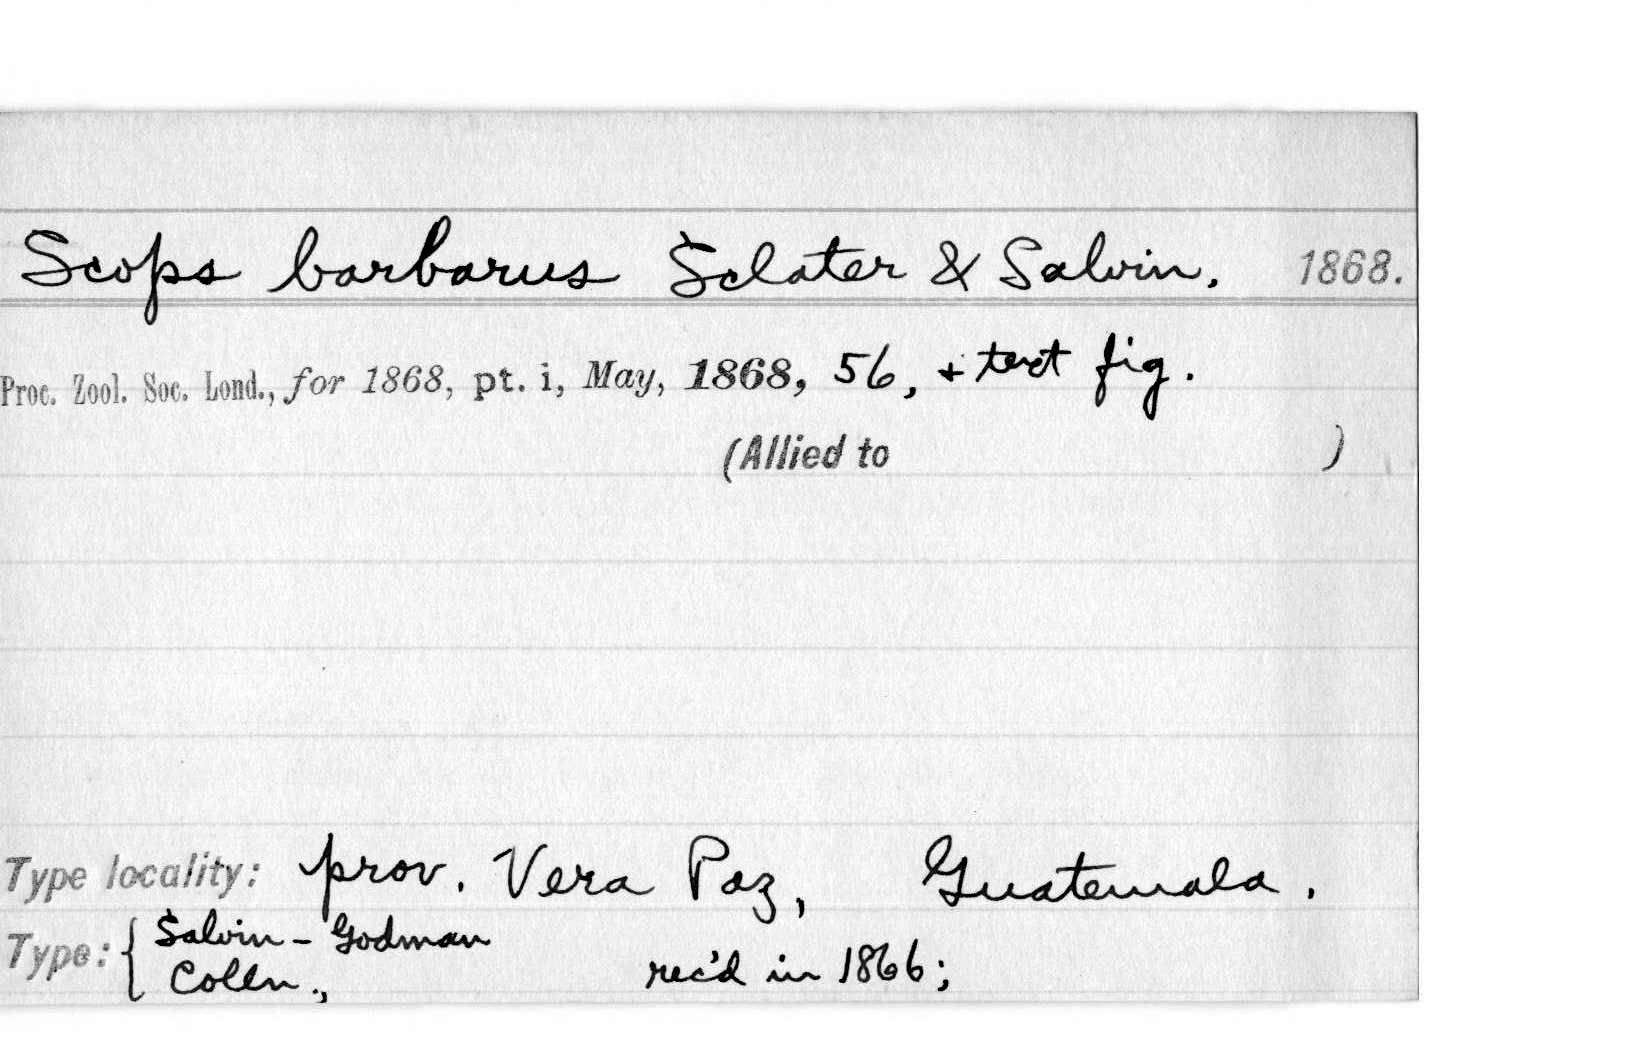 Scops barbarus Sclater & Salvin, 1868.
Proc. Zool. Soc. Lond., for 1868, pt. i, May, 1868, 56, + text fig.
(Allied to )
Type locality: prov. Vera Paz, Guatemala.
Type: { Salvin - Godman
Colln., rec'd in 1866;